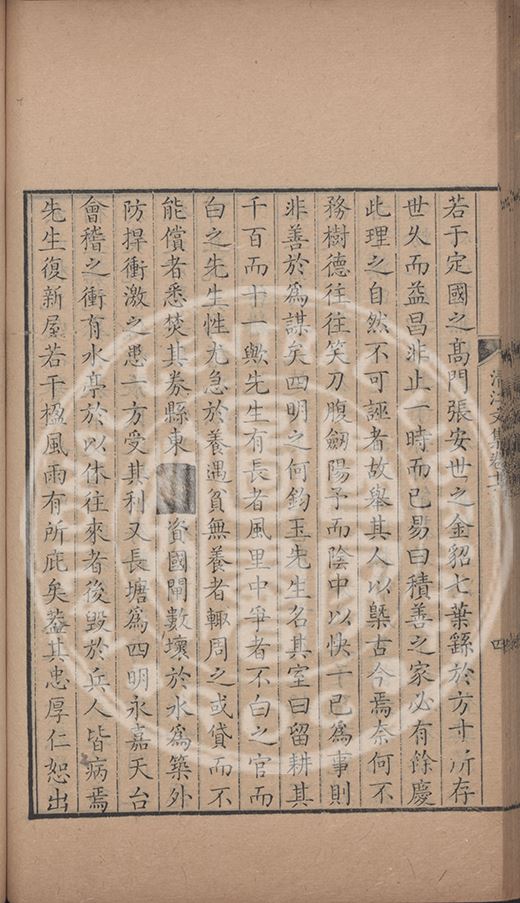 若于定國之髙門張安世之金貂七葉繇於方寸所存
世乆而益昌非止一時而已易曰積善之家必有餘慶
此理之自然不可誣者故舉其人以槩古今焉奈何不
務樹德往往笑刀腹劒陽予而陰中以快于已爲事則
非善於爲謀矣四明之何鈞玉先生名其室曰留耕其
千百而十一歟先生有長者風里中爭者不白之官而
白之先生性尤急於養遇貧無養者輙周之或貸而不
能償者悉焚其券縣東資國閘數壊於水爲築外
防捍衝激之患一方受其利又長塘爲四明永嘉天台
會稽之衝有水亭於以休往來者後毀於兵人皆病焉
先生復新屋若干楹風雨有所庇矣葢其忠厚仁恕出
清江文集卷
四